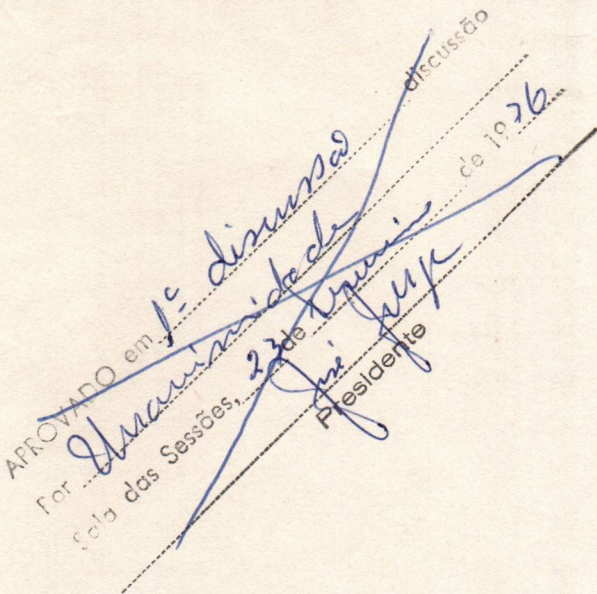 APROVADO em 1ª discussão discussão
Por Unanimidade
Sala das Sessões, 23 de de 1976
José
Presidente